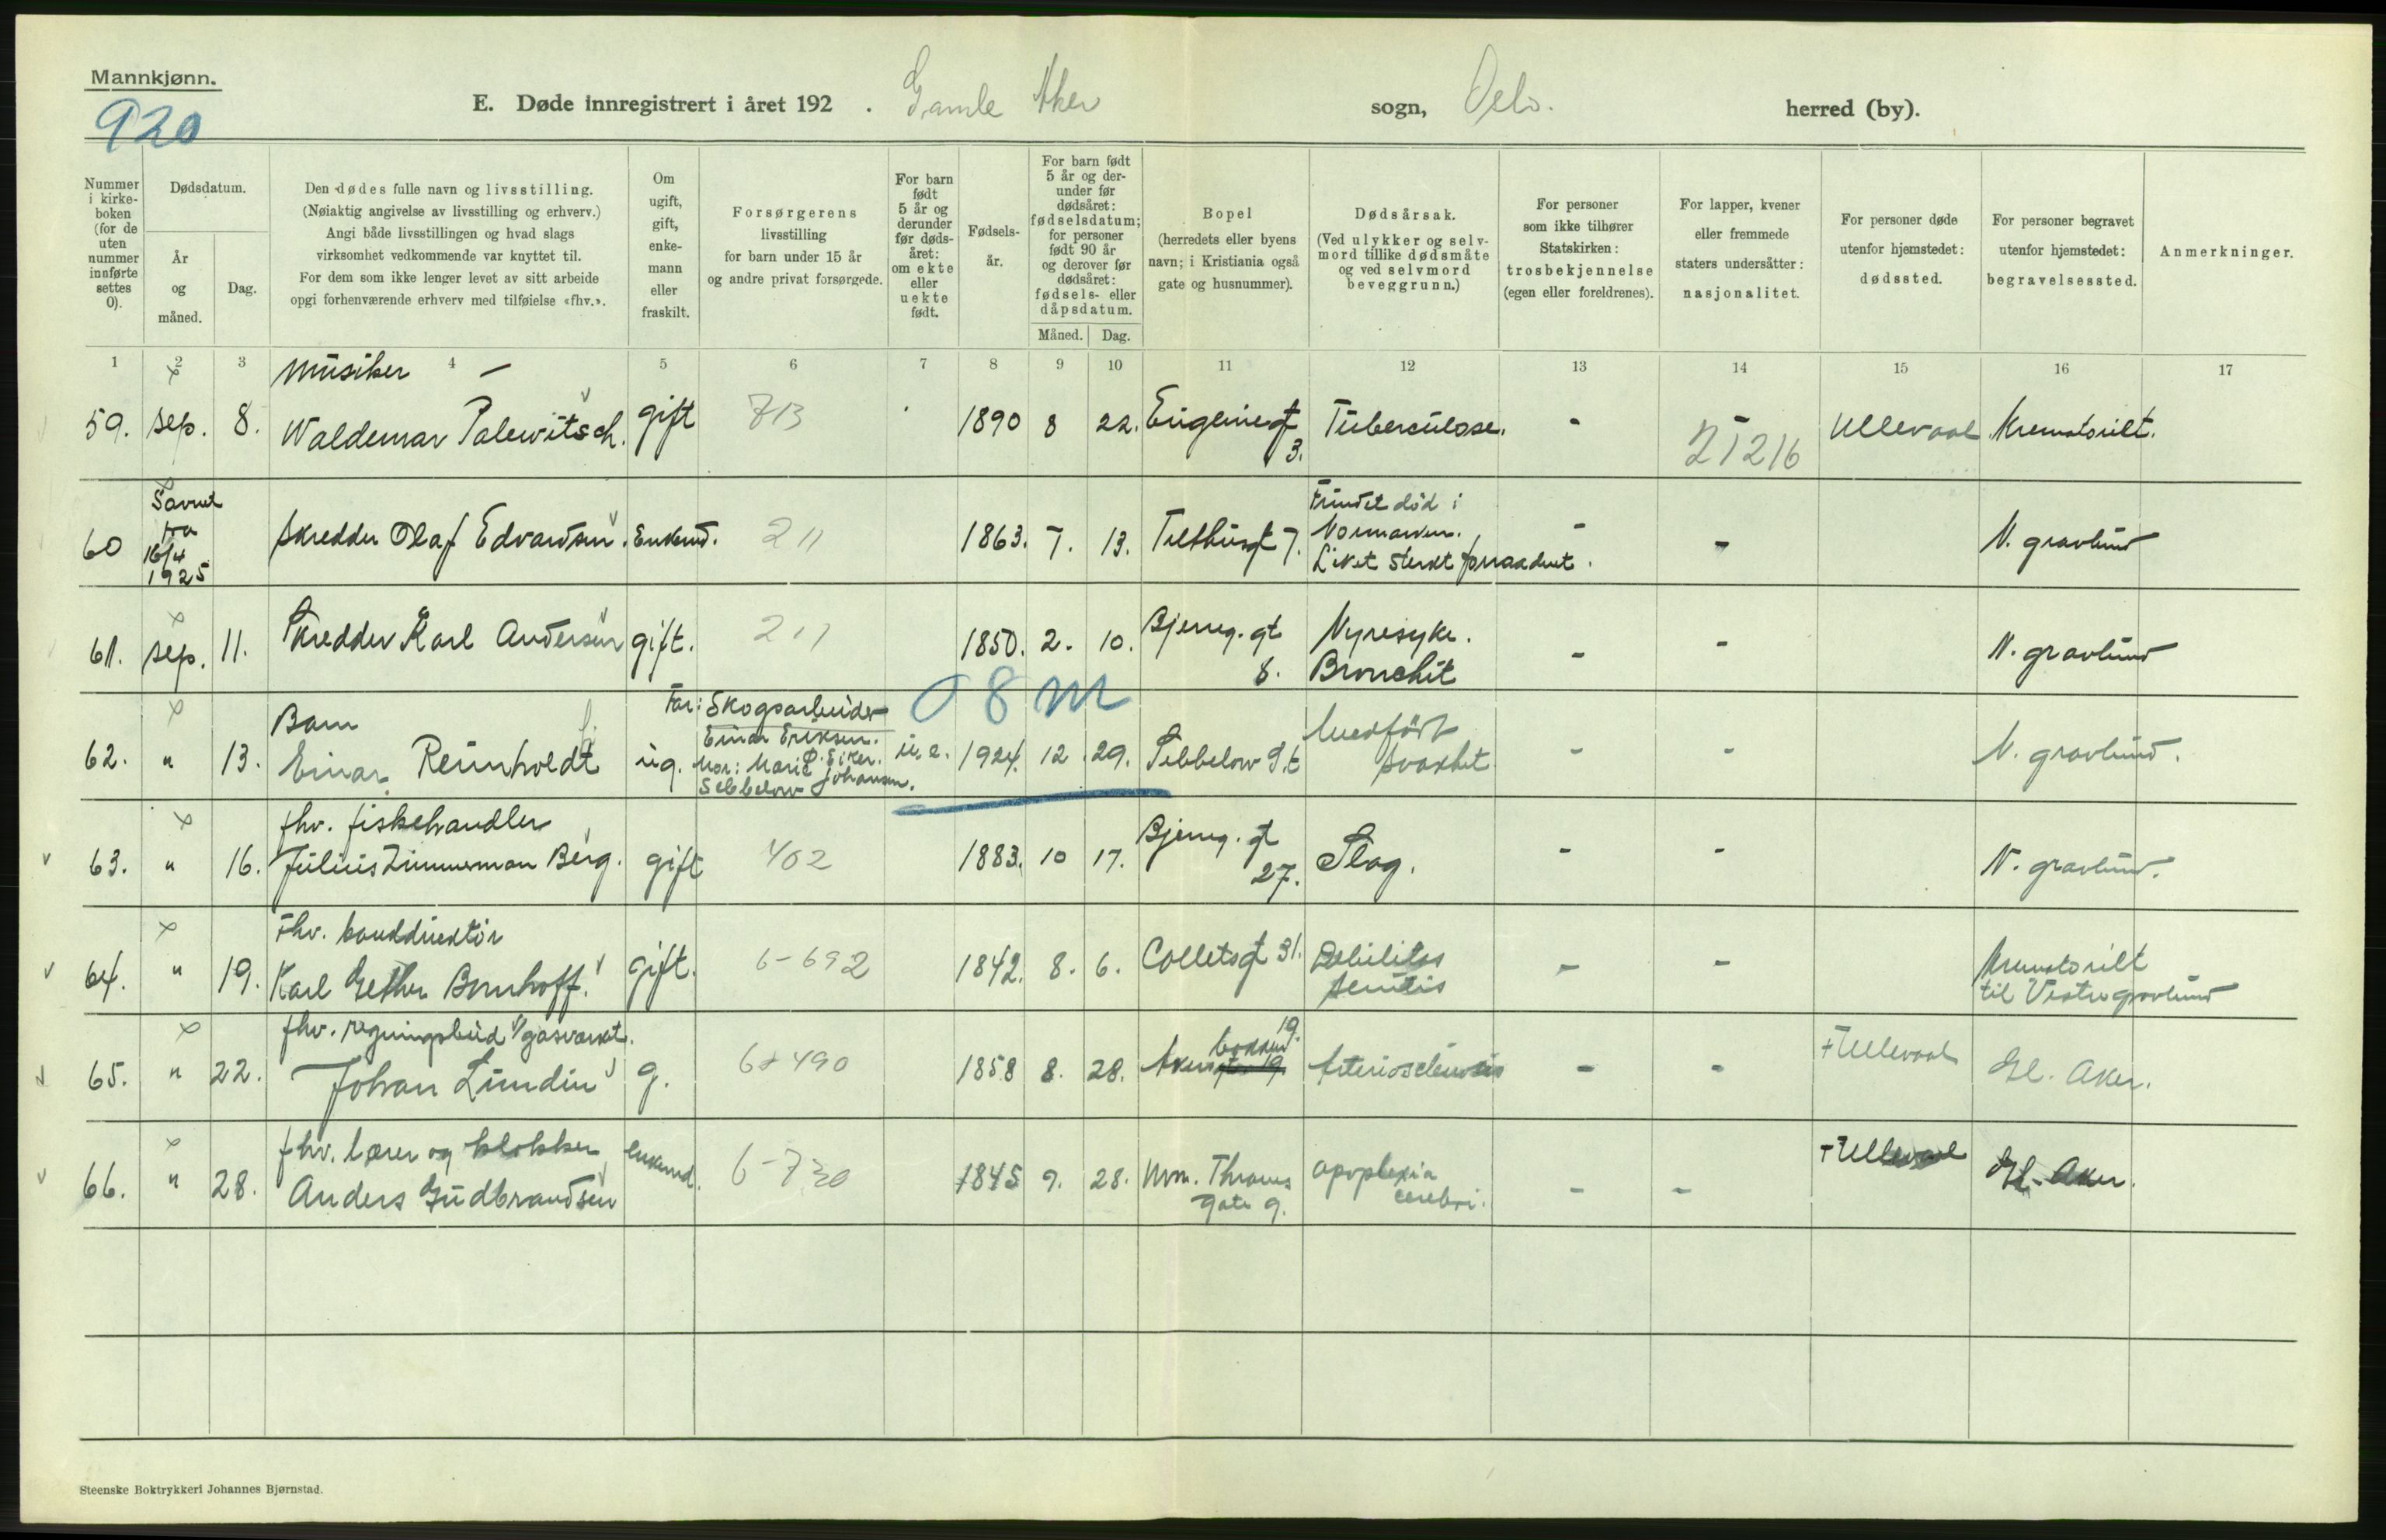 Mannkjønn.
920
E. Døde innregistrert i året 192 . Gamle Aker sogn, Oslo. herred (by).
Nummer i kirkeboken (for de uten nummer innførte settes 0).
Dødsdatum.
År og måned.
Dag.
Den dødes fulle navn og livsstilling.
(Nøiaktig angivelse av livsstilling og erhverv.)
Angi både livsstillingen og hvad slags
virksomhet vedkommende var knyttet til.
For dem som ikke lenger levet av sitt arbeide
opgi forhenværende erhverv med tilføielse «fhv.».
Om ugift, gift, enkemann eller fraskilt.
Forsørgerens
livsstilling
for barn under 15 år
og andre privat forsørgede.
For barn født 5 år og derunder før dødsåret: om ekte eller uekte født.
Fødselsår.
For barn født 5 år og derunder før dødsåret: fødselsdatum; for personer født 90 år og derover før dødsåret: fødsels- eller dåpsdatum.
Måned. Dag.
Bopel
(herredets eller byens
navn; i Kristiania også
gate og husnummer).
Dødsårsak.
(Ved ulykker og selvmord tillike dødsmåte og ved selvmord beveggrunn.)
For personer
som ikke tilhører
Statskirken:
trosbekjennelse
(egen eller foreldrenes).
For lapper, kvener
eller fremmede
staters undersåtter:
nasjonalitet.
For personer døde
utenfor hjemstedet:
dødssted.
For personer begravet
utenfor hjemstedet:
begravelsessted.
Anmerkninger.
1 2 3 4 5 6 7 8 9 10 11 12 13 14 15 16 17
Musiker -
59. Sep. 8. Waldemar Palewitsch. gift 713 1890 8 22. Eugeniegt 3. Tuberculose. - 21216 Ullevaal Krematoriet.
60 Savnet fra 16/4 1925 Skredder Olaf Edvardsen. Enkem. 211 1863. 7. 13. Telthusgt 7. Fundet død i Normarken. Liket sterkt forraadnet. - - N. gravlund
61. Sep. 11. Skredder Karl Andersen gift. 211 1850. 2. 10. Bjerreg. gt 8. Nyresyke. Bronchit - - N. gravlund
08 m
62. " 13. Barn Einar Reinholdt ug. Far: Skogsarbeider Einar Eriksen. Ø. Eiker. Mor: Marie Johansen. Sebbelow u.e. 1924. 12. 29. Sebbelow Gt Medfødt svakhet - - N. gravlund.
63. " 16. fhv. fiskehandler Julius Zimmerman Berg. gift 402 1883. 10 17. Bjerreg. gt 27. Slag. - - N. gravlund.
64. " 19. Fhv. bankdirektør Karl Gether Bomhoff. gift. 6-692 1842. 8. 6. Colletsgt 31. Debilitas senilis - - Krematoriet til Vestre gravlund
65. " 22. fhv. regningsbud v/gasverket. Johan Lundin g. 6+490 1858 8. 28. Akersbakken 19. Arteriosclerosis - - + Ullevaal Gl. Aker.
66. " 28. fhv. lærer og klokker Anders Gudbrandsen enkemd. 6-730 1845 9. 28. Wm. Thranes gate 9. Apoplexia cerebri. - - + Ullevaal Gl. Aker.
Steenske Boktrykkeri Johannes Bjørnstad.